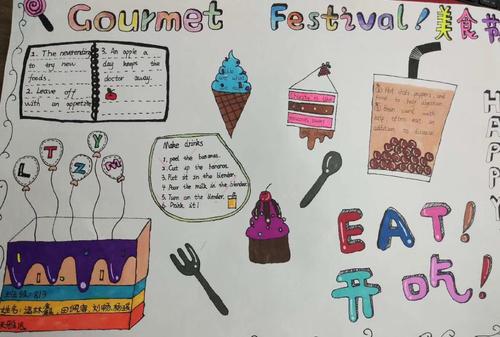 Gourmet Festival! 美食节
1. The neverending
to try new
foods.
2. Leave off
with an appetite
3. An apple a
day keeps the
doctor away.
L T Z Y M
Make drinks
1. peel the bananas.
2. Cut up the bananas.
3. Put it in the blender.
4. Pour the milk in the blender.
5. Turn on the blender.
6. Drink it!
food to help digestion
addition to disease
HAPPY
EAT!
开吃!